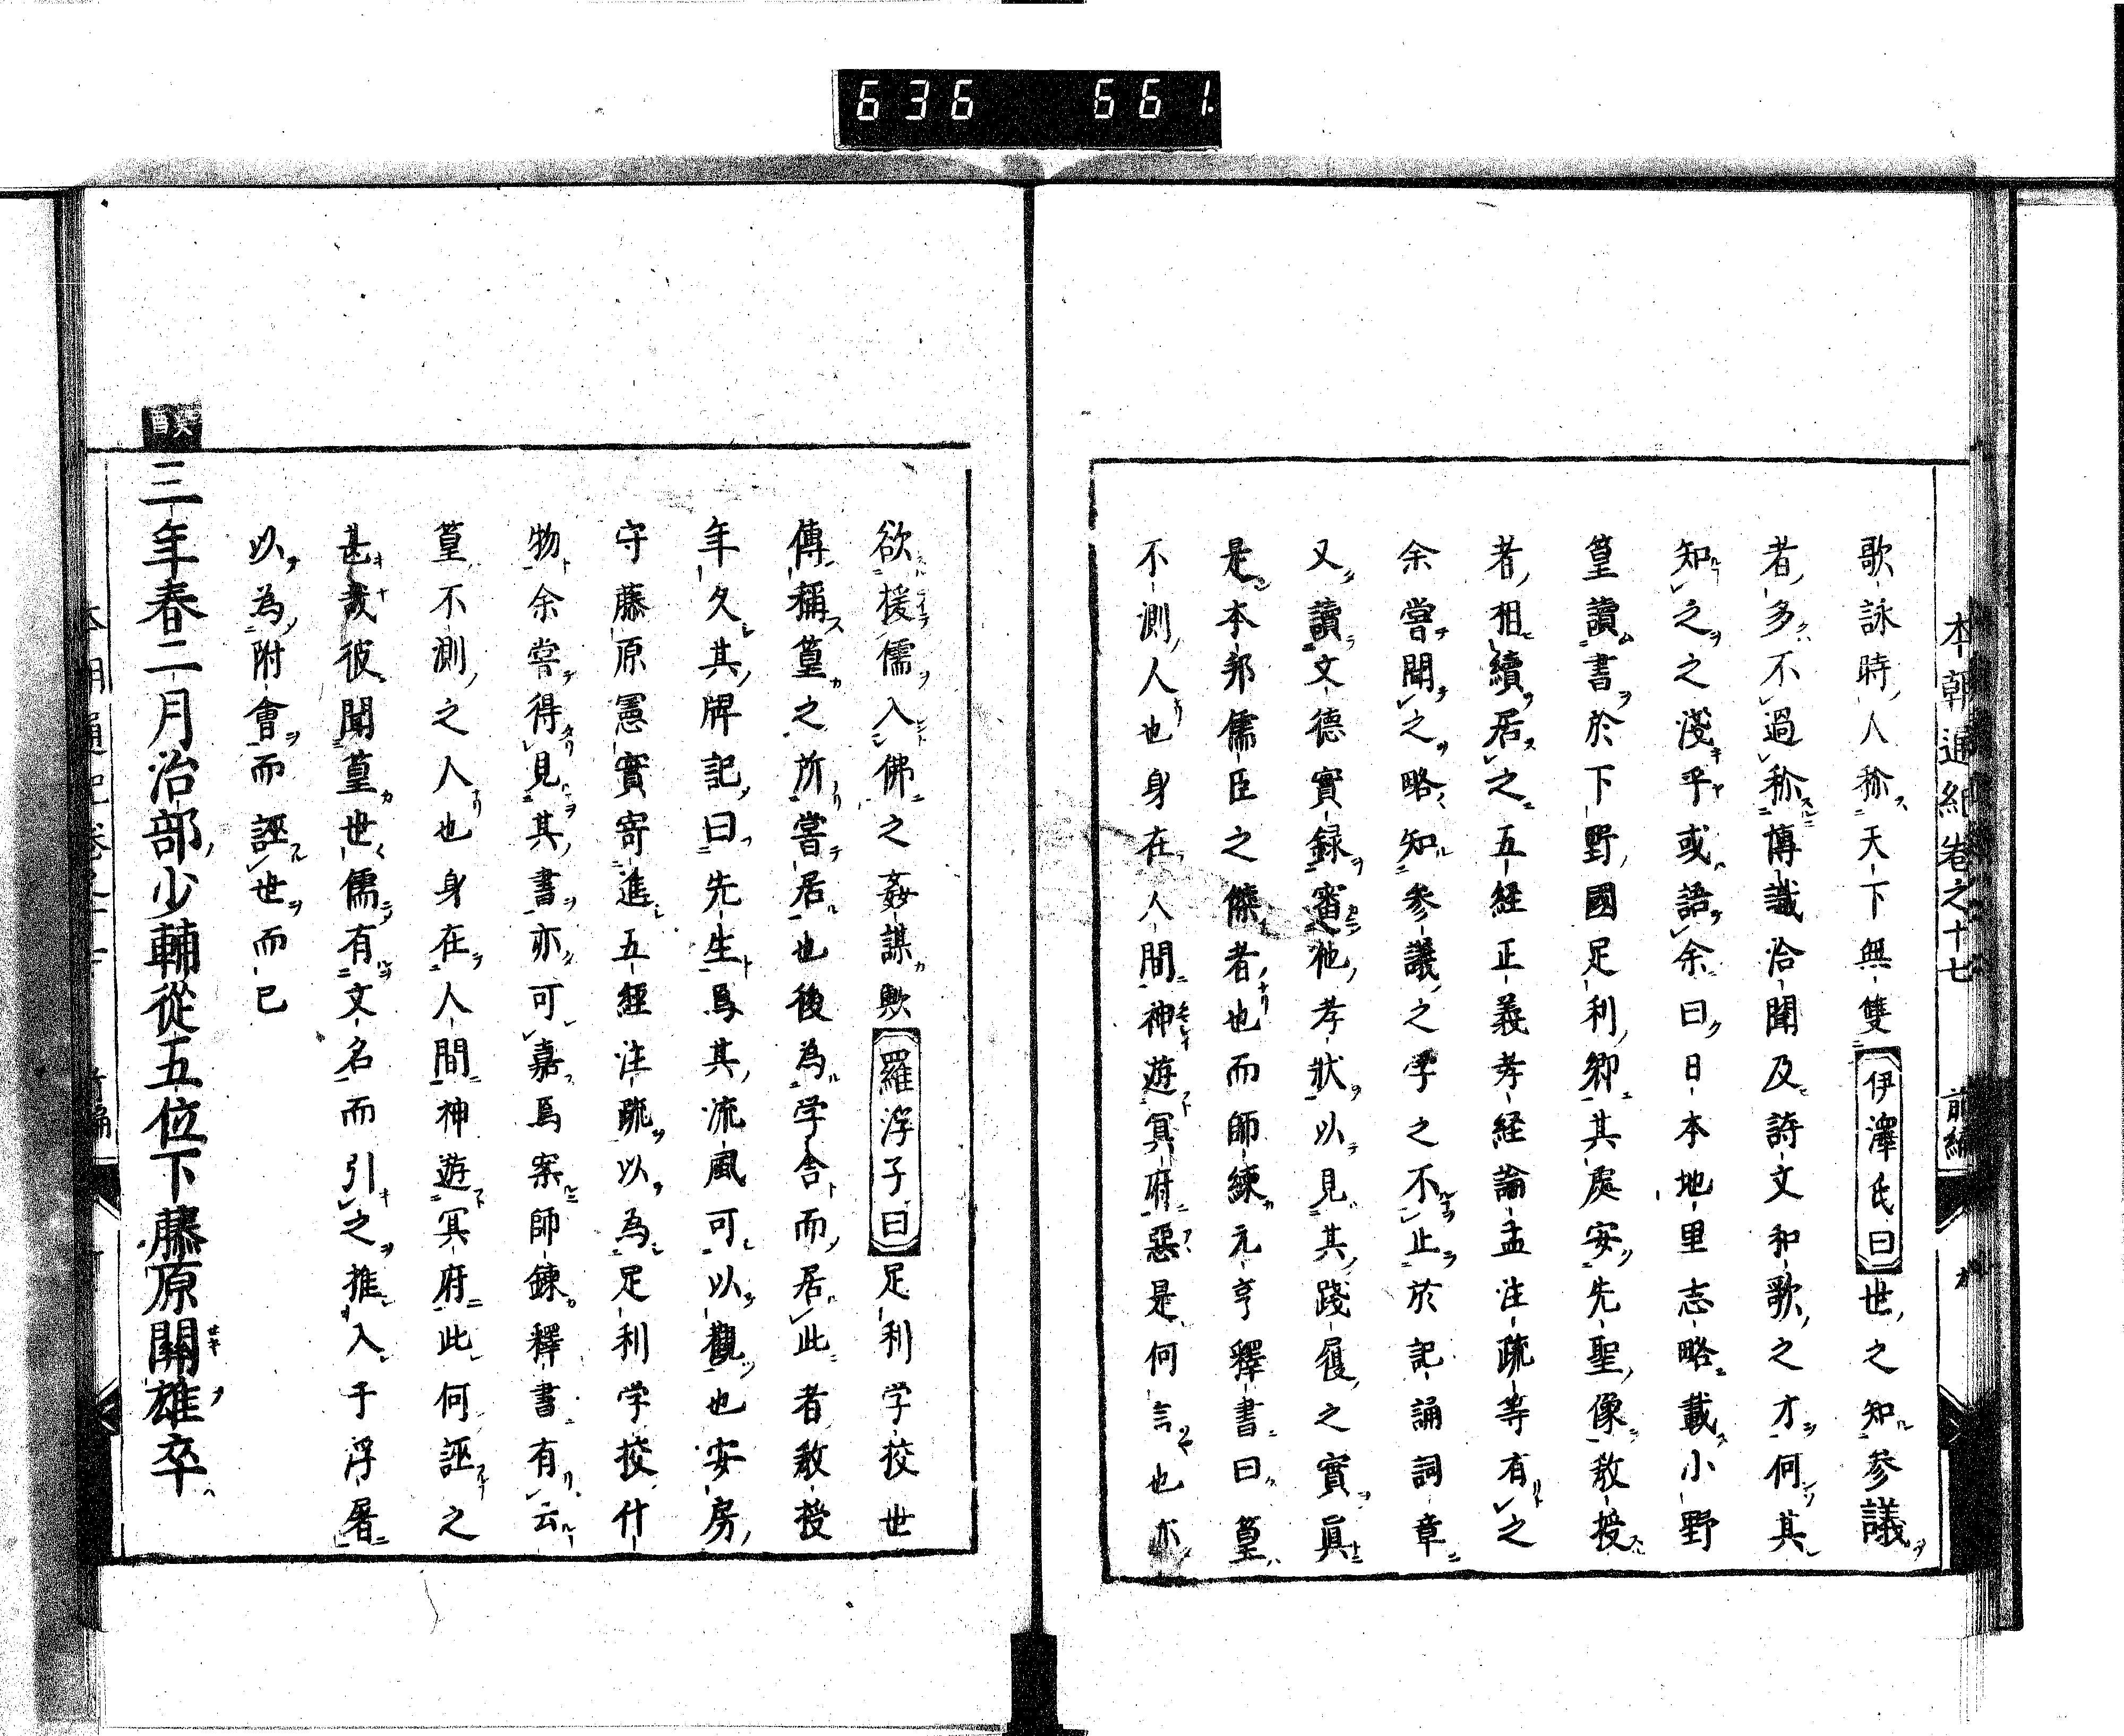 636 661
本朝通紀巻之十七 前編
歌詠時人称天下無雙伊澤氏曰世之知参議
者多不過称博識洽聞及詩文和歌之才何其
知之之淺乎或語余曰日本地里志略載小野
篁讀書於下野國足利郷其處安先聖像教授
者相續居之五経正義孝経論孟注疏等有之
余嘗聞之略知参議之学之不止於記誦詞章
又讀文徳實録審他孝状以見其踐履之實眞
是本邦儒臣之傑者也而師練元亨釋書曰篁
不測人也身在人間神遊冥府惡是何言也亦
欲援儒入佛之姦謀歟羅浮子曰足利学校世
傳稱篁之所嘗居也後為学舎而居此者教授
年久其牌記曰先生爲其流風可以觀也安房
守藤原憲實寄進五經注疏以為足利学校什
物余嘗得見其書亦可嘉焉案師錬釋書有云
篁不測之人也身在人間神遊冥府此何誣之
甚哉彼聞篁世儒有文名而引之推入于浮屠
以為附會而誣世而已
三年春二月治部少輔從五位下藤原關雄卒